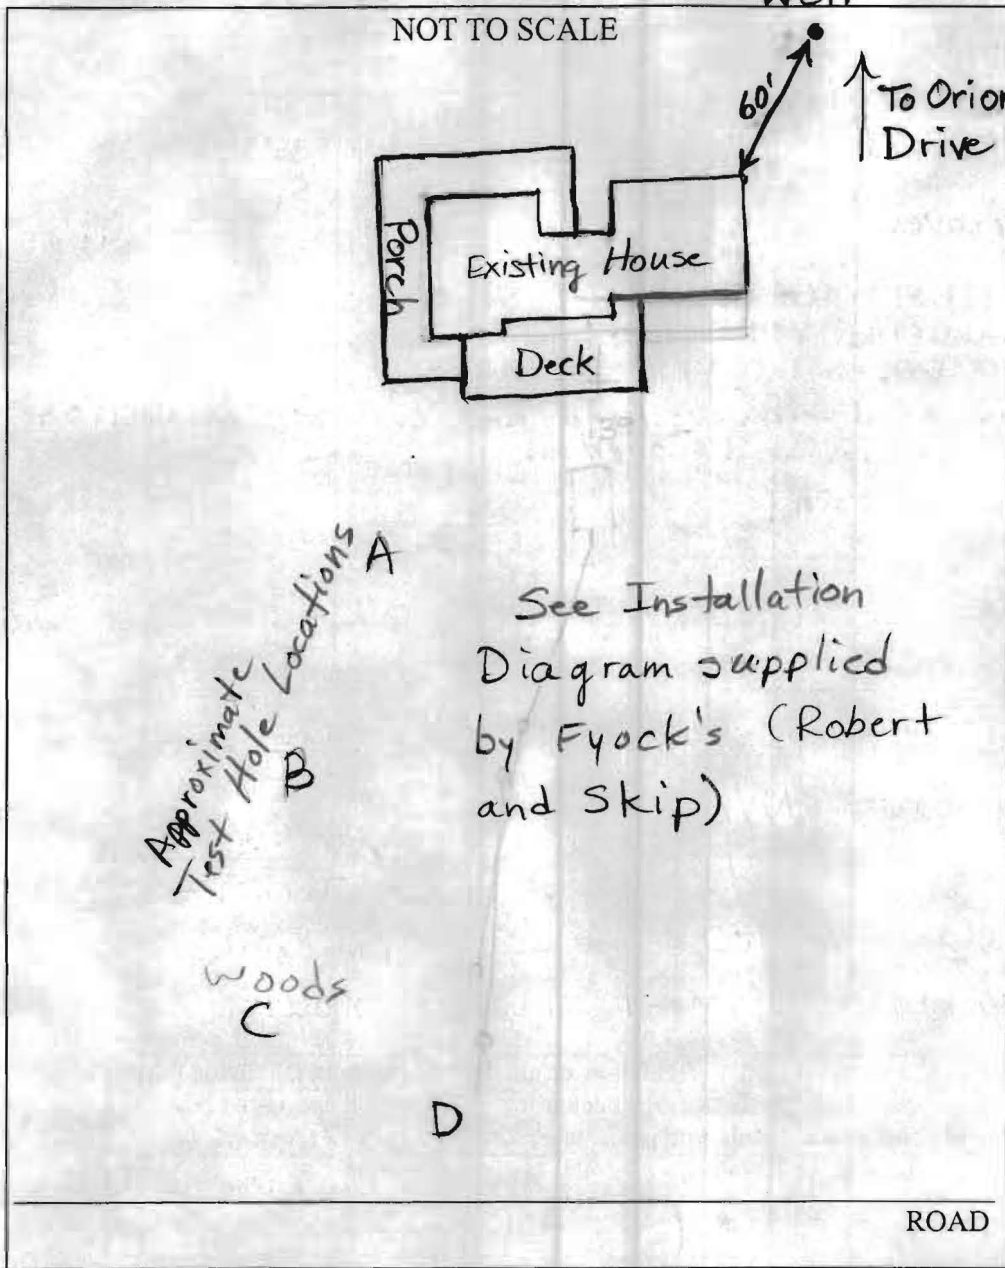 Well
NOT TO SCALE
60'
To Orion
Drive
Porch
Existing House
Deck
A
Approximate
Test Hole Locations
B
See Installation
Diagram supplied
by Fyock's (Robert
and Skip)
Woods
C
D
ROAD